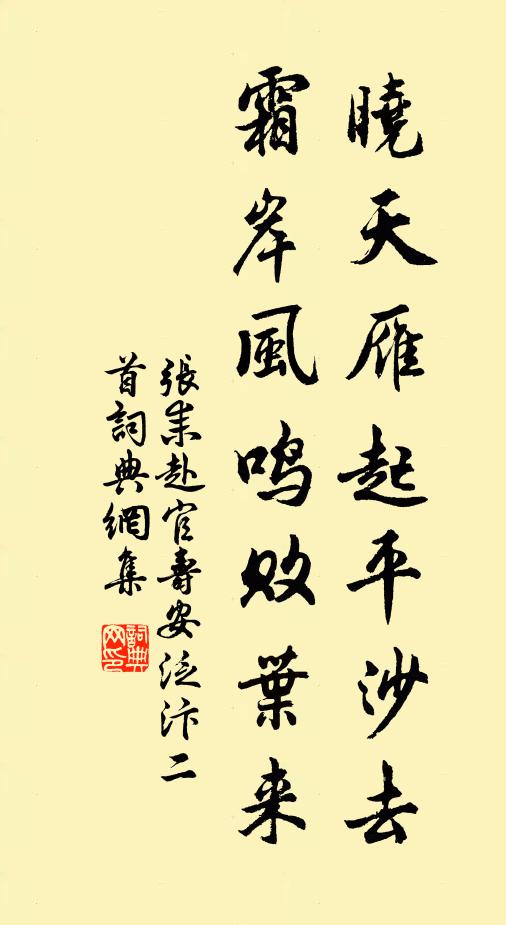 曉天雁起平沙去
霜岸風鳴敗葉来
張耒赴官壽安泛汴二
首詞典網集
詞典
网印